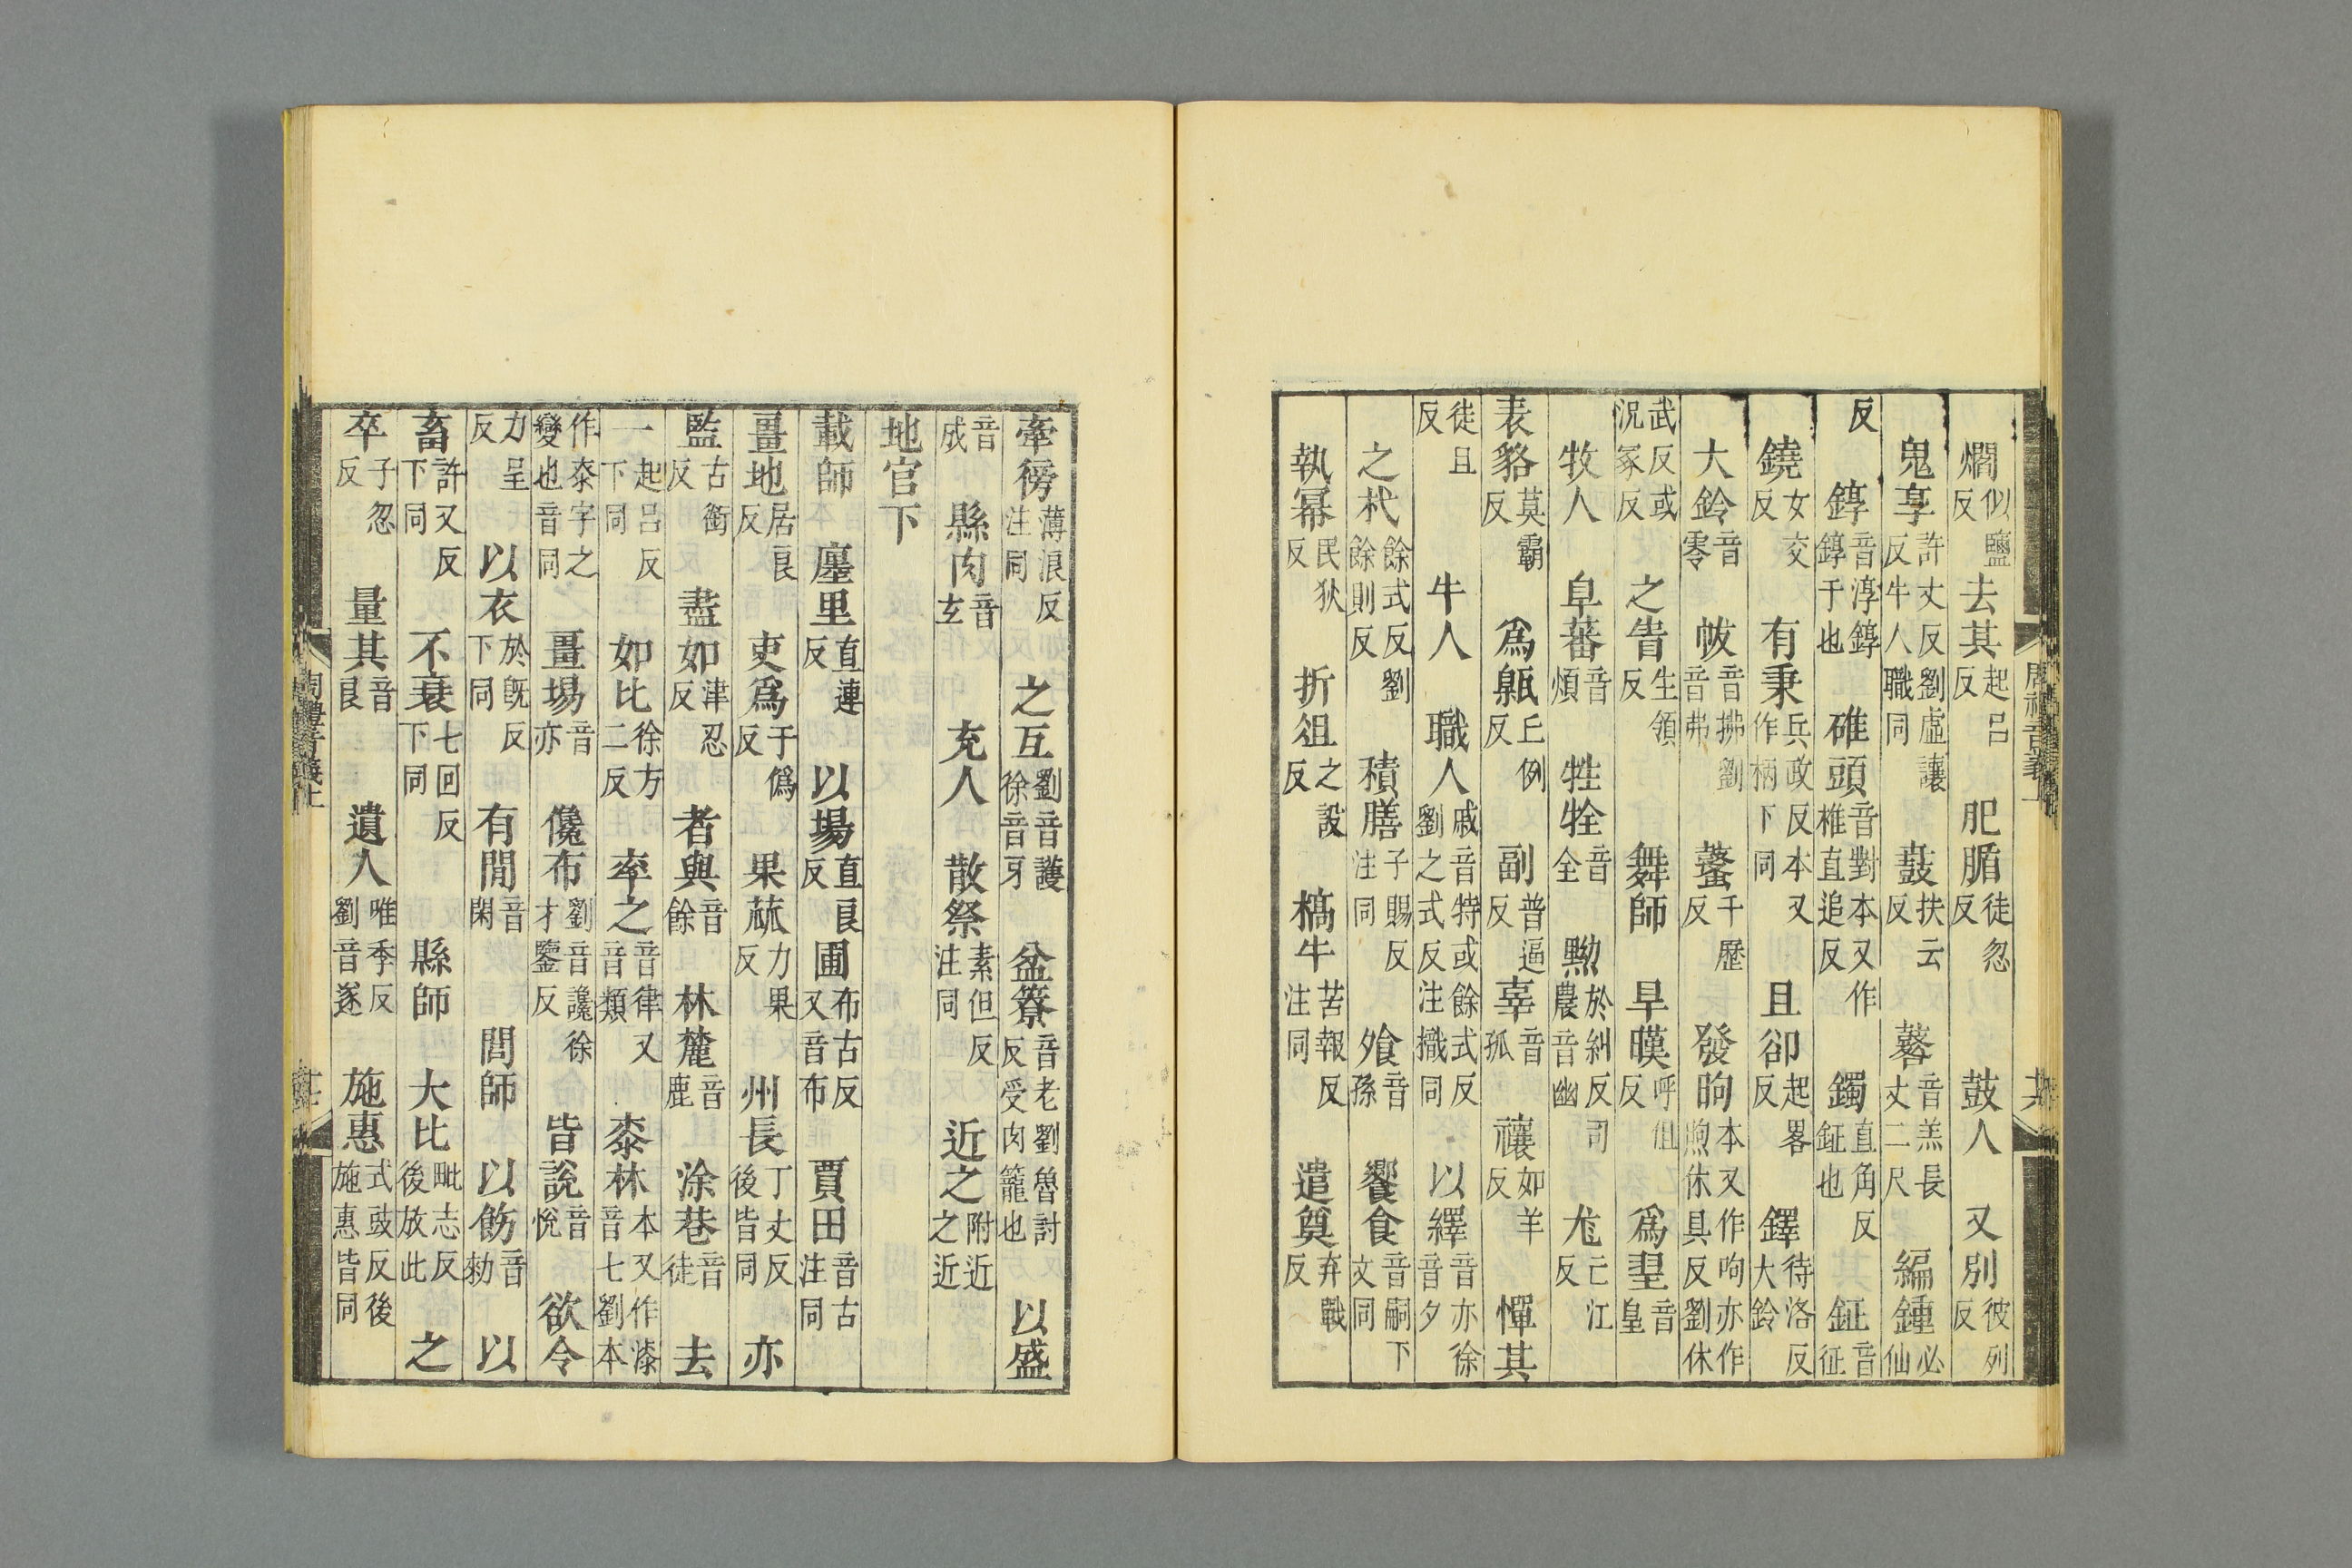 爓似鹽反 去其起呂反 肥腯徒忽反 鼓人 又別彼列反
鬼享許丈反劉虛讓反牛人職同 鼖扶云反 鼛音羔長丈二尺 編鍾必仙
反 錞音淳錞錞于也 碓頭音對本又作椎直追反 鐲直角反鉦也 鉦音征
鐃女交反 有秉兵政反本又作柄下同 且卻起畧反 鐸待洛反大鈴
大鈴音零 帗音拂劉音弗 鼜千歷反 發昫本又作呴亦作煦休具反劉休
武反或況冢反 之眚生領反 舞師 旱暵呼但反 爲䍿音皇
牧人 阜蕃音煩 牲牷音全 黝於糾反司農音幽 尨亡江反
表貉莫霸反 爲甈丘例反 副普逼反 辜音孤 禳如羊反 憚其
徒旦反 牛人 職人戚音特或餘式反劉之式反注樴同 以繹音亦徐音夕
之杙餘式反劉餘則反 積膳子賜反注同 飧音孫 饗食音嗣下文同
執冪民狄反 折俎之設反 槁牛苦報反注同 遣奠弃戰反
牽徬薄浪反注同 之互劉音護徐音牙 盆簝音老劉魯討反受肉籠也 以盛
音成 縣肉音玄 充人 散祭素但反注同 近之附近之近
地官下
載師 廛里直連反 以場直良反 圃布古反又音布 賈田音古注同
畺地居良反 吏爲于僞反 果蓏力果反 州長丁丈反後皆同 亦
監古銜反 盡如津忍反 者與音餘 林麓音鹿 涂巷音徒 去
一起呂反下同 如比徐方二反 率之音律又音類 桼林本又作漆音七劉本
作桼字之變也音同 畺埸音亦 儳布劉音讒徐才鑒反 皆說音悅 欲令
力呈反 以衣於旣反下同 有閒音閑 閭師 以飭音勑 以
畜許又反下同 不衰七回反下同 縣師 大比毗志反後放此 之
卒子忽反 量其音良 遺人唯季反劉音遂 施惠式豉反後施惠皆同